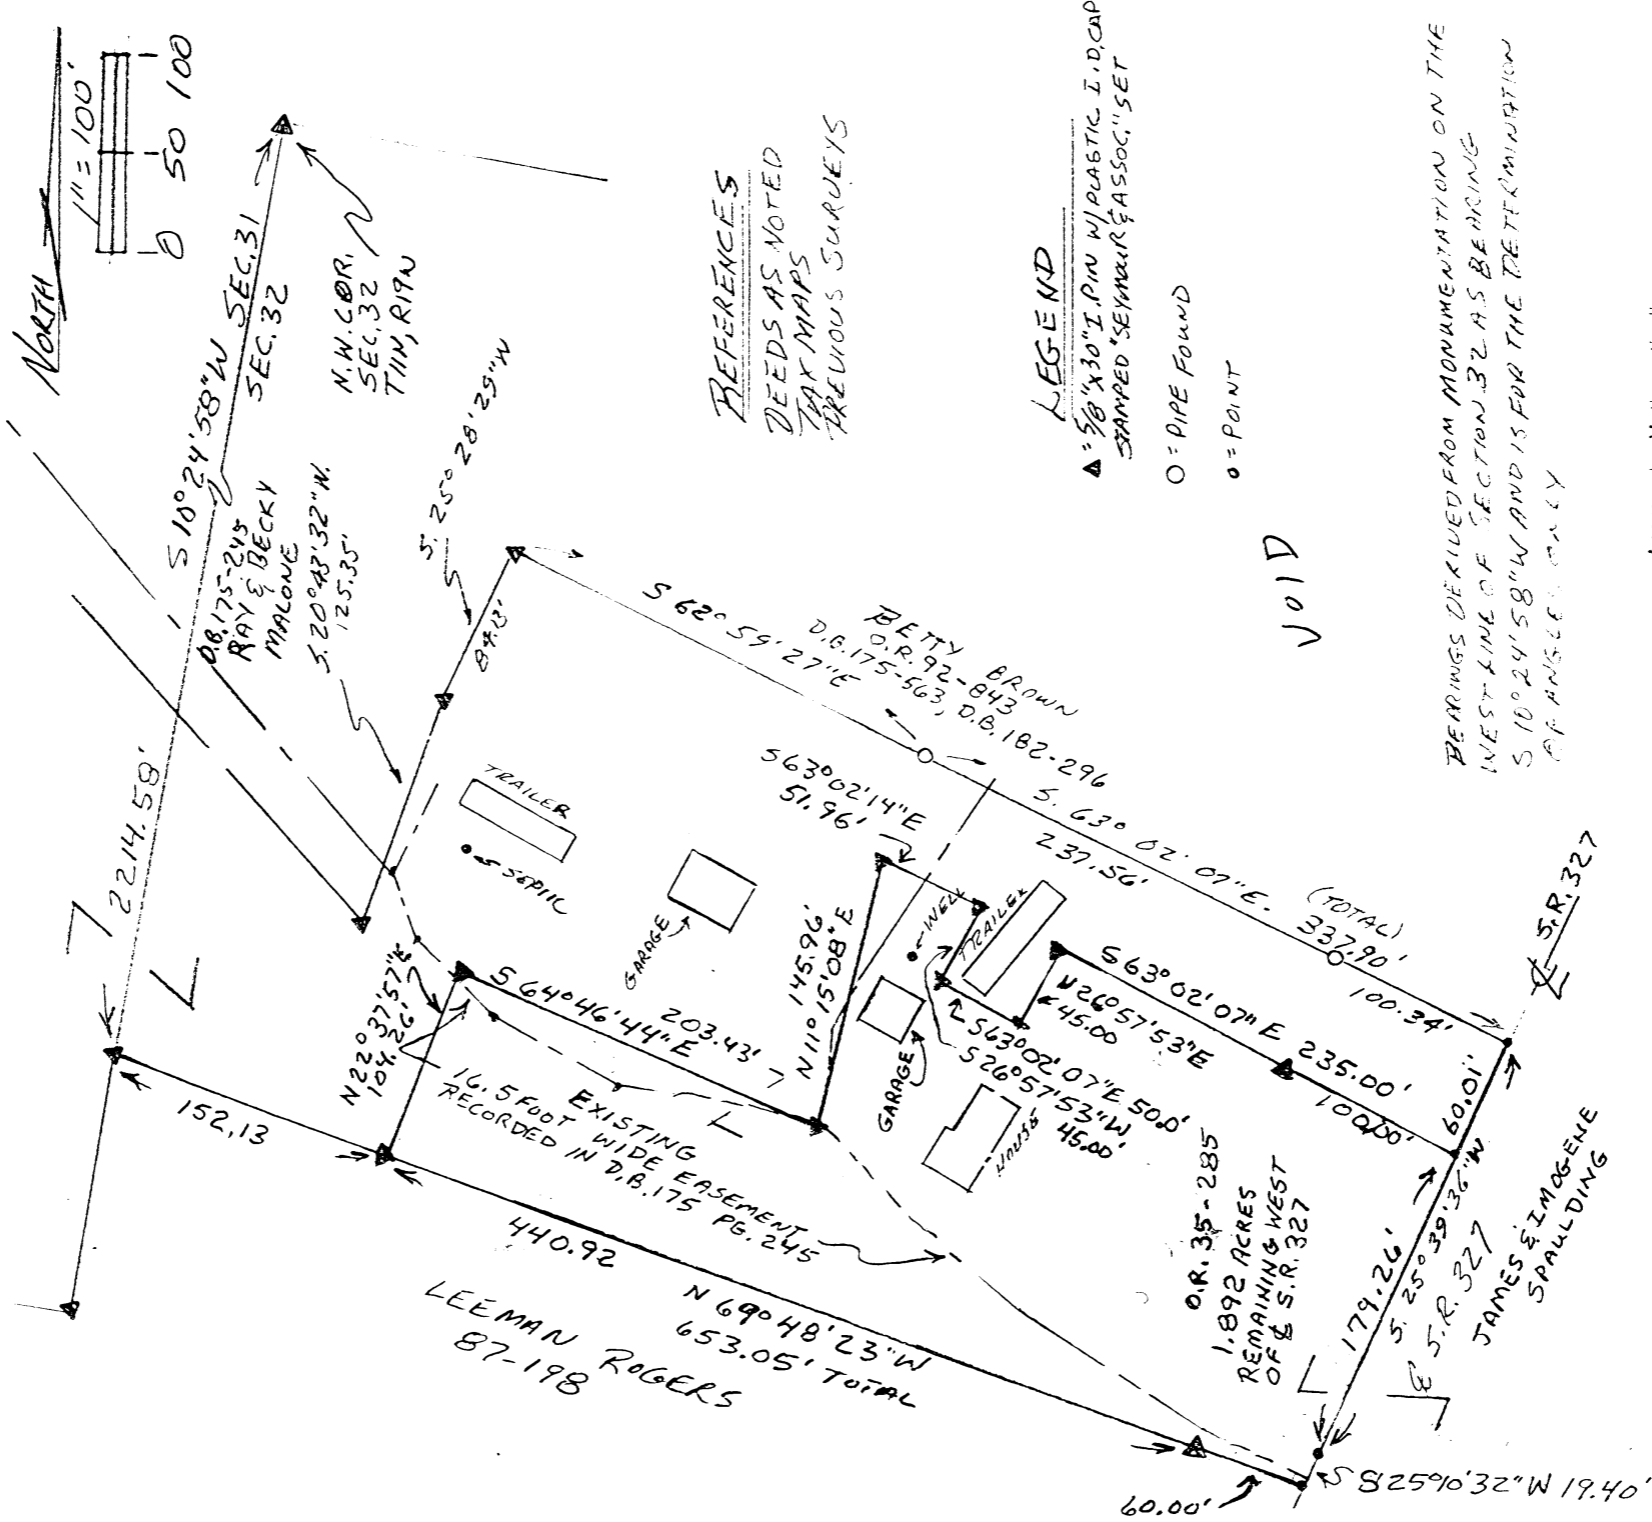 NORTH
1"=100'
0 50 100
S 10°24'58"W SEC.31
SEC.32
N.W.COR.
SEC.32
T11N, R19N
2214.58'
D.B.175-245
RAY & BECKY
MALONE
S.20°43'32"W.
125.35'
S. 25° 28' 29"W
84.13'
REFERENCES
DEEDS AS NOTED
TAX MAPS
PREVIOUS SURVEYS
LEGEND
▲ = 5/8"x30" I.PIN W/PLASTIC I.D.CAP
STAMPED "SEYMOUR & ASSOC." SET
O = PIPE FOUND
• = POINT
VOID
BEARINGS DERIVED FROM MONUMENTATION ON THE
WEST LINE OF SECTION 32 AS BEARING
S 10°24'58"W AND IS FOR THE DETERMINATION
OF ANGLES ONLY
S 62° 59' 27"E
BETTY BROWN
O.R.92-843
D.B.175-563, D.B.182-296
S. 63° 02' 07"E. (TOTAL)
237.56' 337.90'
100.34'
℄ S.R.327
TRAILER
SEPTIC
GARAGE
S63°02'14"E
51.96'
WELL
TRAILER
N22°37'57"E
104.26'
S 64°46'44"E
203.43'
N 11° 15'08"E
145.96'
GARAGE
HOUSE
S63°02'07"E 50.0'
S26°57'53"W
45.00'
N26°57'53"E
45.00
S63°02'07"E 235.00'
100.00'
60.01'
16.5 FOOT WIDE EASEMENT
EXISTING
RECORDED IN D.B.175 PG.245
152.13
440.92
N 69°48'23"W
653.05' TOTAL
LEEMAN ROGERS
87-198
O.R. 35-285
1.892 ACRES
REMAINING WEST
OF ℄ S.R.327
179.26'
S. 25° 39' 36"W
℄ S.R. 327
JAMES & IMOGENE
SPAULDING
60.00'
19.40'